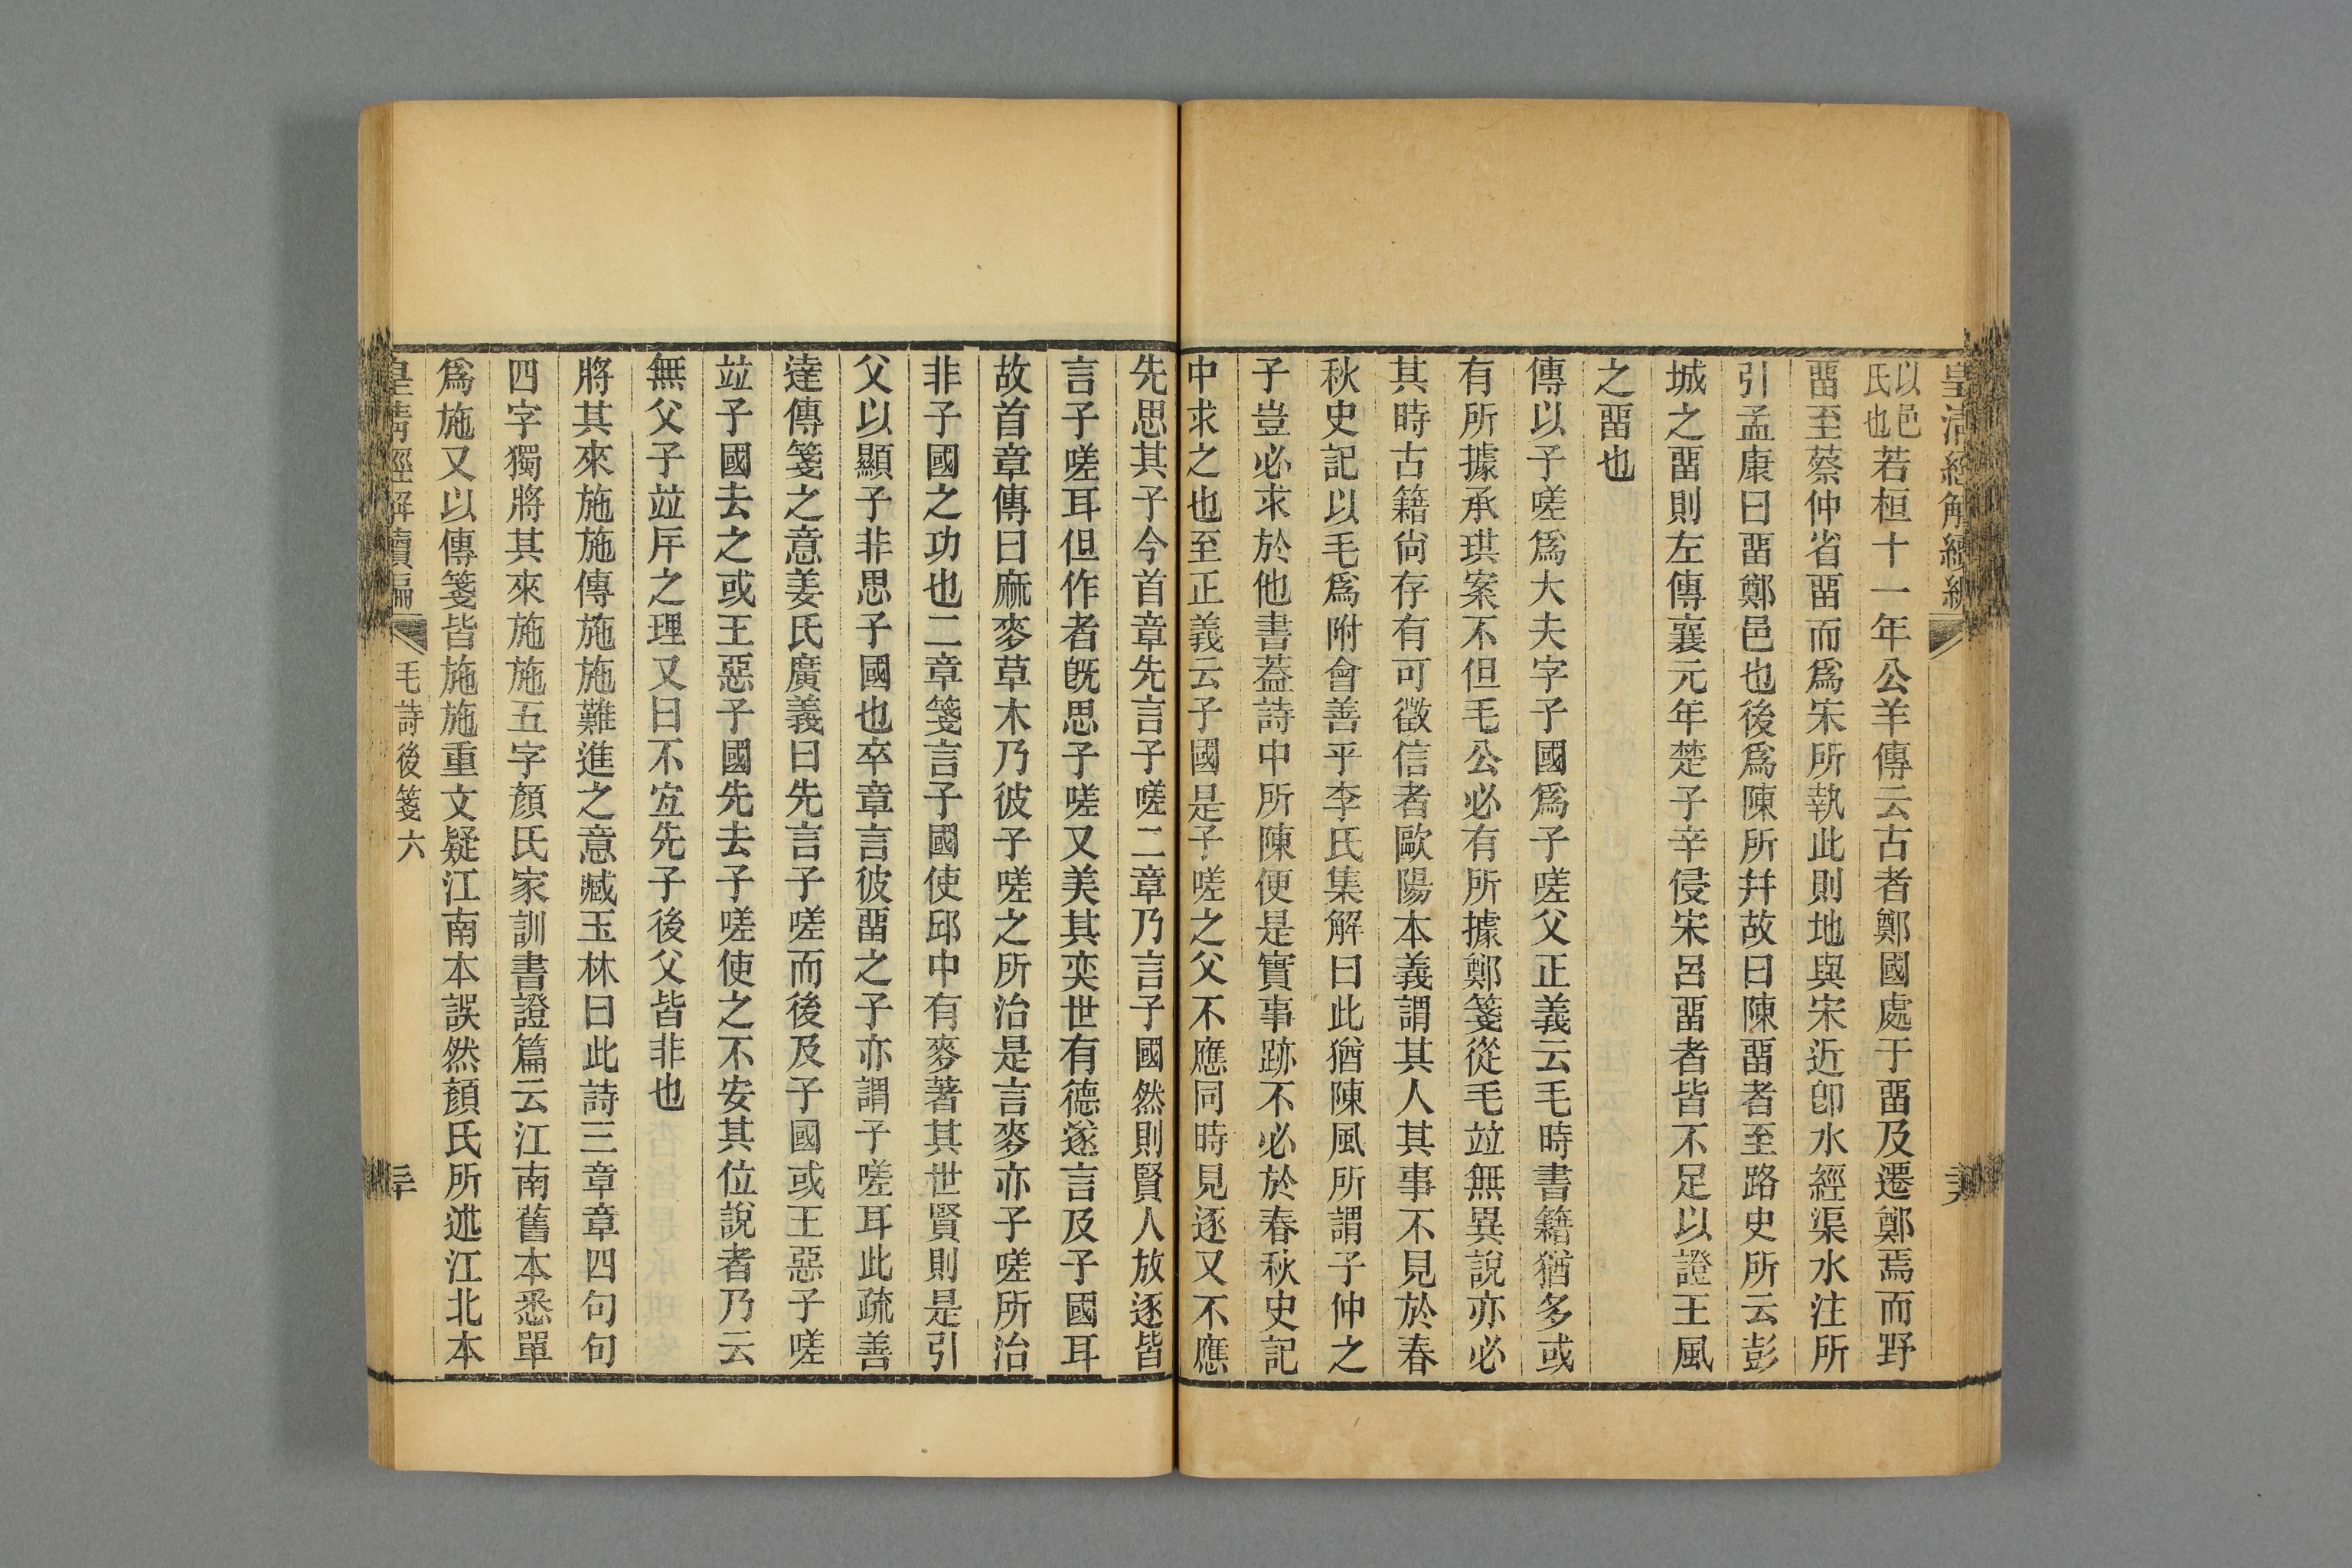 皇清經解續編
以邑
氏也
若桓十一年公羊傳云古者鄭國處于畱及遷鄭焉而野
畱至蔡仲省畱而爲宋所執此則地與宋近卽水經渠水注所
引孟康曰畱鄭邑也後爲陳所幷故曰陳畱者至路史所云彭
城之畱則左傳襄元年楚子辛侵宋呂畱者皆不足以證王風
之畱也
傳以子嗟爲大夫字子國爲子嗟父正義云毛時書籍猶多或
有所據承珙案不但毛公必有所據鄭箋從毛竝無異說亦必
其時古籍尙存有可徵信者歐陽本義謂其人其事不見於春
秋史記以毛爲附會善乎李氏集解曰此猶陳風所謂子仲之
子豈必求於他書葢詩中所陳便是實事跡不必於春秋史記
中求之也至正義云子國是子嗟之父不應同時見逐又不應
先思其子今首章先言子嗟二章乃言子國然則賢人放逐皆
言子嗟耳但作者旣思子嗟又美其奕世有德遂言及子國耳
故首章傳曰麻麥草木乃彼子嗟之所治是言麥亦子嗟所治
非子國之功也二章箋言子國使邱中有麥著其世賢則是引
父以顯子非思子國也卒章言彼畱之子亦謂子嗟耳此疏善
達傳箋之意姜氏廣義曰先言子嗟而後及子國或王惡子嗟
竝子國去之或王惡子國先去子嗟使之不安其位說者乃云
無父子竝斥之理又曰不宜先子後父皆非也
將其來施施傳施施難進之意臧玉林曰此詩三章章四句句
四字獨將其來施施五字顏氏家訓書證篇云江南舊本悉單
爲施又以傳箋皆施施重文疑江南本誤然顏氏所述江北本
皇清經解續編
毛詩後箋六